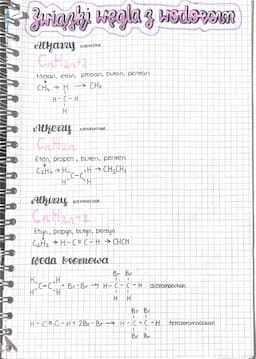 Związki węgla z wodorem
Alkany nasycone
CnH2n+2
Metan, etan, propan, butan, pentan
CH4 → H → CH4
H - C - H
H
Alkeny nienasycone
CnH2n
Eten, propen, buten, penten
C2H4 → H H → CH2CH2
C=C
H H
Alkiny nienasycone
CnH2n-2
Etyn, propyn, butyn, pentyn
C2H2 → H - C ≡ C - H → CHCH
Woda bromowa
Br Br
H H
C=C + Br - Br → H - C - C - H dibromoetan
H H
H H
Br Br
H - C ≡ C - H + 2Br - Br → H - C - C - H tetrabromoetan
Br Br